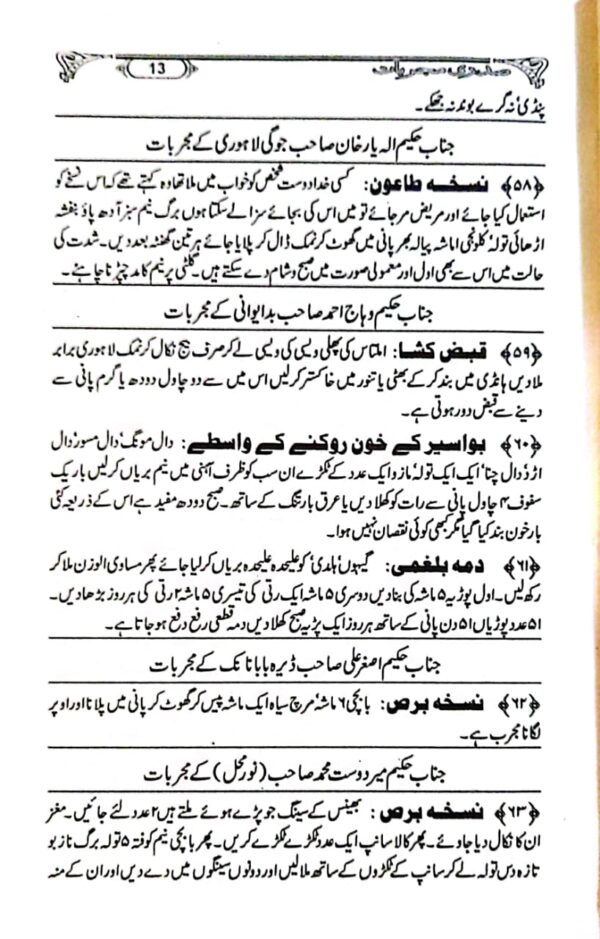 صدری مجربات
13
پنڈی نہ گرے بوند نہ جھکے۔
جناب حکیم الہ یار خان صاحب جوگی لاہوری کے مجربات
﴿۵۸﴾ نسخہ طاعون: کسی خدا دوست شخص کو خواب میں ملا تھا وہ کہتے تھے کہ اس نسخے کو
استعمال کیا جائے اور مریض مر جائے تو میں اس کی بجائے سزا لے سکتا ہوں برگ نیم سبز آدھ پاؤ بنفشہ
اڑھائی تولہ کلونجی ۱ماشہ پیالہ بھر پانی میں گھوٹ کر نمک ڈال کر پلایا جائے ہر تین گھنٹہ بعد دیں۔ شدت کی
حالت میں اس سے بھی اول اور معمولی صورت میں صبح و شام دے سکتے ہیں۔ گلٹی پر نیم کا مد چپڑنا چاہئے۔
جناب حکیم وہاج احمد صاحب بدایوانی کے مجربات
﴿۵۹﴾ قبض کشا: املتاس کی پھلی ویسی کی ویسی لے کر صرف بیج نکال کر نمک لاہوری برابر
ملا دیں ہانڈی میں بند کر کے بھٹی یا تنور میں خاکستر کر لیں اس میں سے دو چاول دودھ یا گرم پانی سے
دینے سے قبض دور ہوتی ہے۔
﴿۶۰﴾ بواسیر کے خون روکنے کے واسطے: دال مونگ دال مسور دال
اڑد دال چنا ایک ایک تولہ مازو ایک عدد کے ٹکڑے ان سب کو ظرف آہنی میں نیم بریاں کر لیں باریک
سفوف ۴ چاول پانی سے رات کو کھلا دیں یا عرق بارتنگ کے ساتھ۔ صبح دودھ مفید ہے اس کے ذریعہ کئی
بار خون بند کیا گیا مگر کبھی کوئی نقصان نہیں ہوا۔
﴿۶۱﴾ دمہ بلغمی: گیہوں ہلدی کو علیحدہ علیحدہ بریاں کر لیا جائے پھر مساوی الوزن ملا کر
رکھ لیں۔ اول پوڑیہ ۵ ماشہ کی بنا دیں دوسری ۵ ماشہ ایک رتی کی تیسری ۵ ماشہ ۲ رتی کی ہر روز بڑھا دیں۔
۵۱ عدد پوڑیاں ۵۱ دن پانی کے ساتھ ہر روز ایک پڑیہ صبح کھلا دیں دمہ قطعی رفع دفع ہو جاتا ہے۔
جناب حکیم اصغر علی صاحب ڈیرہ بابا نانک کے مجربات
﴿۶۲﴾ نسخہ برص: بابچی ۶ ماشہ مرچ سیاہ ایک ماشہ پیس کر گھوٹ کر پانی میں پلانا اور اوپر
لگانا مجرب ہے۔
جناب حکیم میر دوست محمد صاحب (نور محل) کے مجربات
﴿۶۳﴾ نسخہ برص: بھینس کے سینگ جو پڑے ہوئے ملتے ہیں ۲ عدد لئے جائیں۔ مغز
ان کا نکال دیا جاوے۔ پھر کالا سانپ ایک عدد ٹکڑے ٹکڑے کریں۔ پھر بابچی نیم کوفتہ ۵ تولہ برگ نازبو
تازہ دس تولہ لے کر سانپ کے ٹکڑوں کے ساتھ ملا لیں اور دونوں سینگوں میں دے دیں اور ان کے منہ